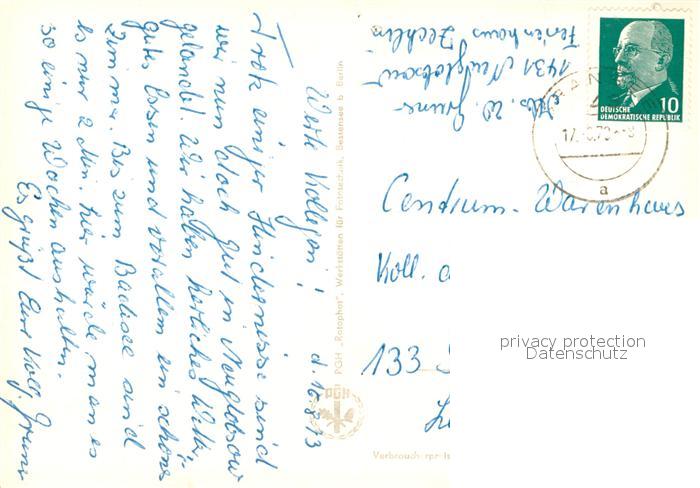 Werte Kollegen! d. 16.8.73
Trotz einiger Hindernisse sind
wir nun doch gut in Neuglobsow
gelandet. Wir haben herrliches Wetter,
gutes Essen und vor allem ein schönes
Zimmer. Bis zum Badesee sind
es nur 2 Min. Hier würde man es
so einige Wochen aushalten.
Es grüßt Eure Koll. Grune
PGH „Rotophot", Werkstätten für Fototechnik, Bestensee b. Berlin
PGH
Abs. W. Grune
1431 Neuglobsow
Ferienhaus Zechlin
10
DEUTSCHE
DEMOKRATISCHE REPUBLIK
a
Centrum-Warenhaus
Koll.
133
privacy protection
Datenschutz
Verbraucherpreis